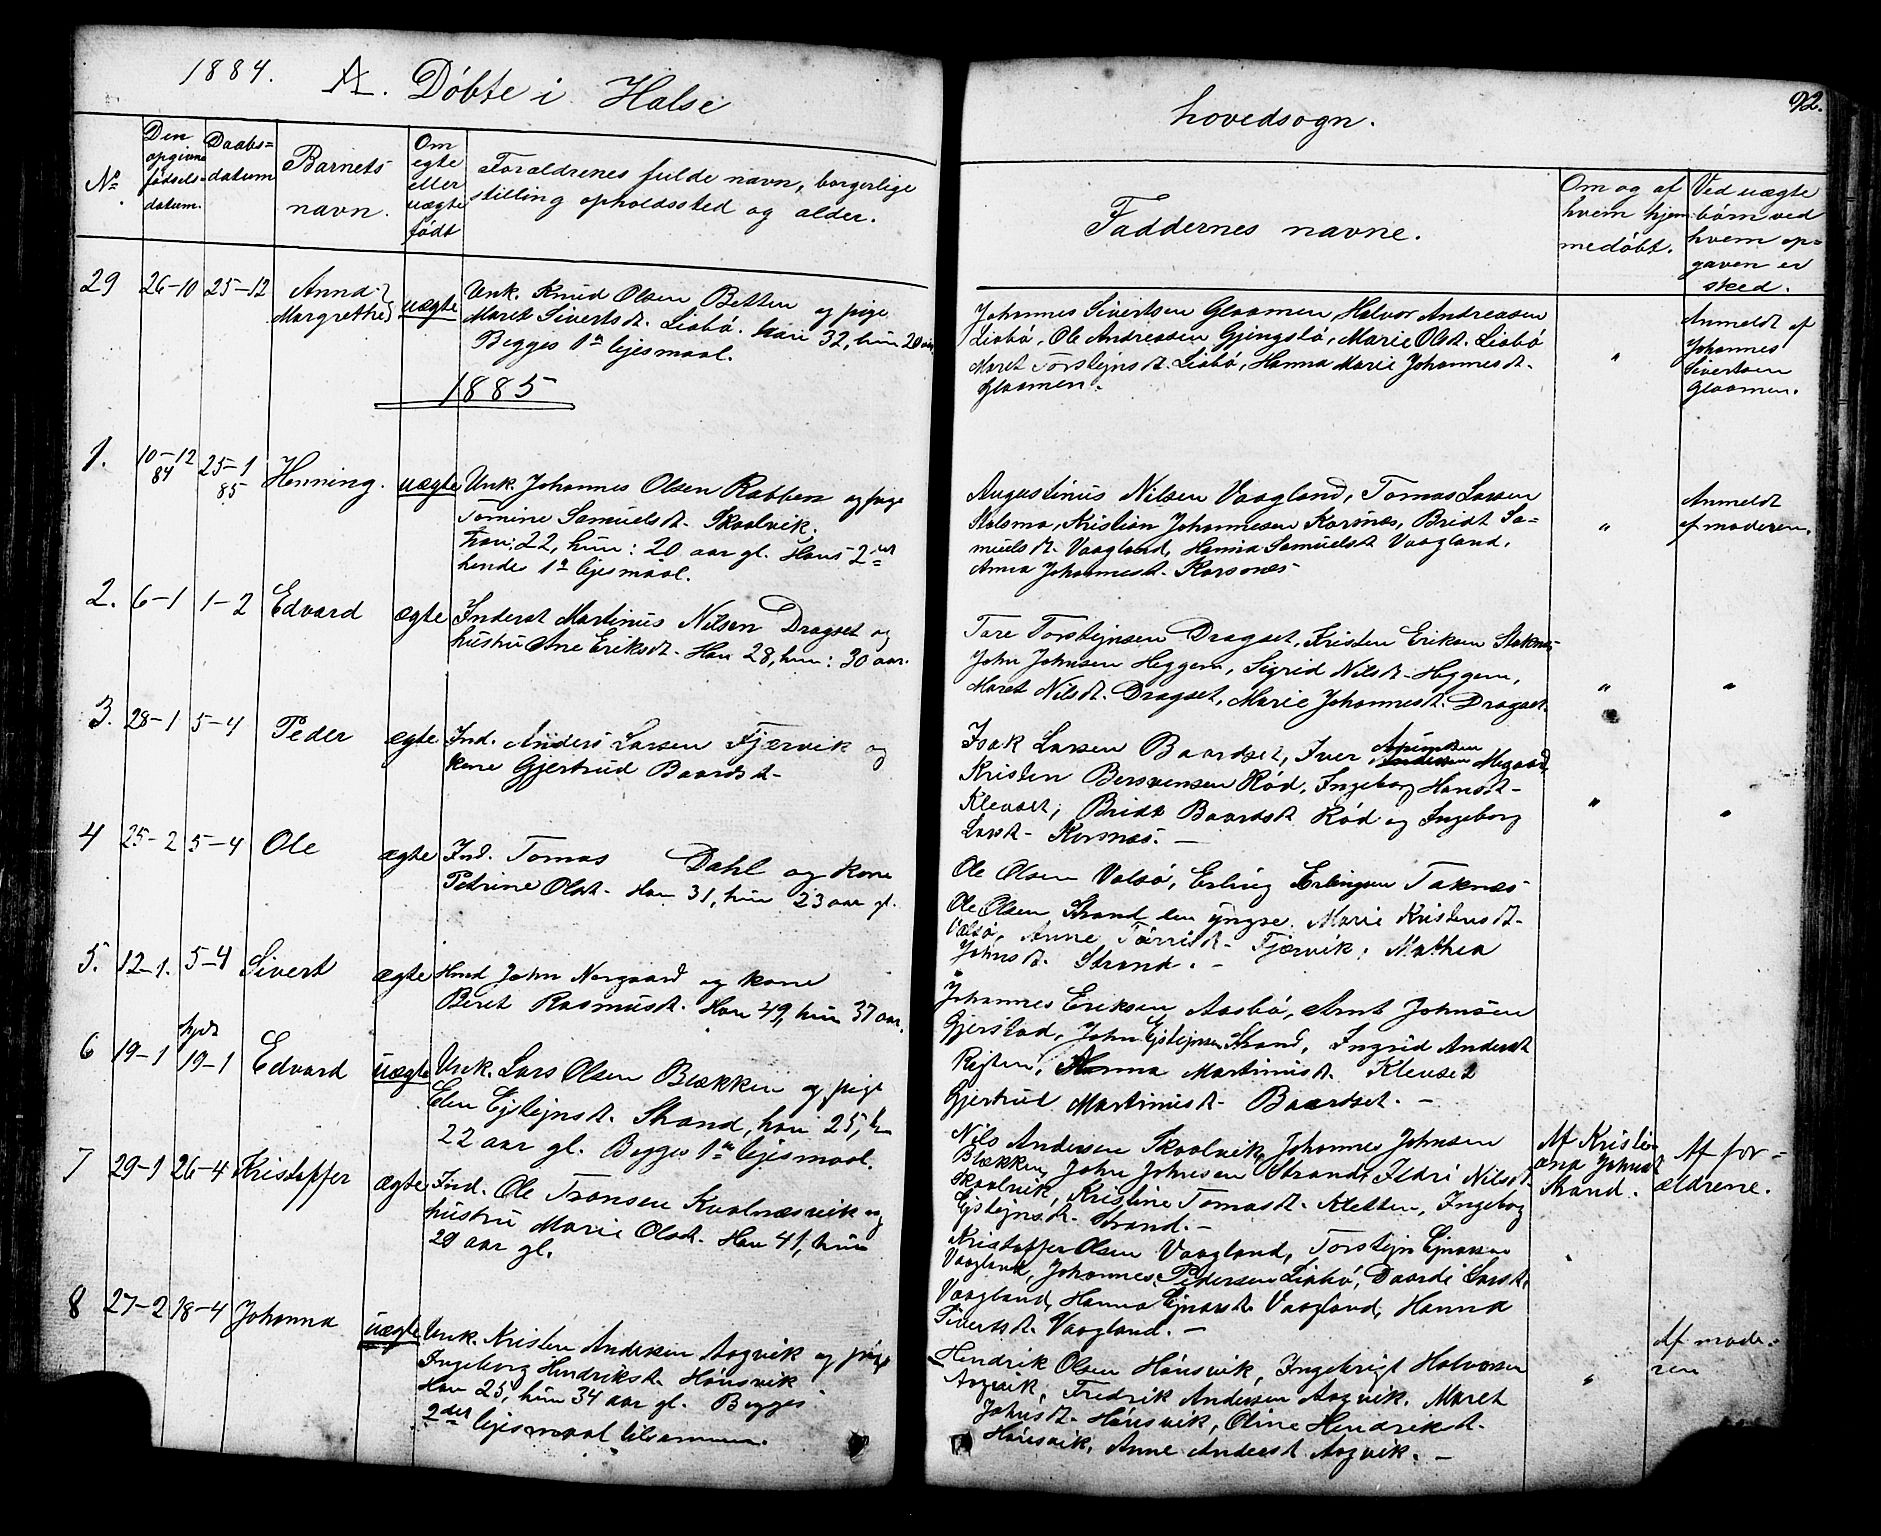 1884. A. Döbte i Halse
hovedsogn.
92.
No
Den opgivne fødsels-datum.
Daabs-datum
Barnets navn.
Om egte eller uægte født
Forældrenes fulde navn, borgerlige
stilling opholdssted og alder.
Faddernes navne.
Om og af hvem hjem
medøbt.
Ved uægte
börn ved
hvem op-
gaven er
sked.
29 26-10 25-12 Anna Margrethe uægte
Unk. Knud Olsen Betten og pige
Maret Sivertsdt. Liabö. han 32, hun 20 aar
Begges 1ste lejesmaal.
Johannes Sivertsen Glaamen, Halvor Andreassen
Liabö, Ole Andreassen Gjengstö, Marie Olsdt. Liabö
Maret Torstejnsdt. Liabö, Hanna Marie Johannesdt.
Glaamen.
"
Anmeldt af
Johannes
Sivertsen
Glaamen.
1885
1. 10-12 84 25-1 85 Henning. uægte
Unk. Johannes Olsen Rabben og pige
Tomine Samuelsdt. Skaalvik.
han: 22, hun: 20 aar gl. Hans 2det
hendes 1ste lejesmaal.
Augustinus Nilsen Vaagland, Tomas Larsen
Stolsmo, Kristian Johannesen Korsnæs, Bridt Sa-
muelsdt. Vaagland, Hanna Samuelsdt Vaagland,
Anna Johannesdt. Korsnæs
"
Anmeldt
af moderen.
2. 6-1 1-2 Edvard ægte
Inderst Martinus Nilsen Dragset og
hustru Ane Eriksdt. Han 28, hun: 30 aar.
Tore Torstejnsen Dragset, Kristen Eriksen Stoknes
John Johnsen Heggem, Sigrid Nilsdt. Heggem,
Maret Nilsdt. Dragset, Marie Johannesdt. Dragset.
" "
3. 28-1 5-4 Peder ægte
Ind. Anders Larsen Fjærvik og
kone Gjertrud Baardsdt.
Isak Larsen Baardset, Iver Megaard,
Kristen Bersvensen Röd, Ingeborg Hansdt.
Klevset, Bridt Baardsdt. Röd og Ingeborg
Larsdt. Korsnæs. —
" "
4 25-2 5-4 Ole ægte
Ind. Tomas Dahl og kone
Petrine Olsdt. Han 31, hun 23 aar gl.
Ole Olsen Valsö, Erling Erlingsen Taknæs
Ole Olsen Strand den yngre. Marie Kristensdt.
Valsö, Anne Törrisdt. Fjærvik, Mathea
Johnsdt. Strand. —
5. 12-1. 5-4 Sivert ægte
Hmd John Norgaard og kone
Beret Rasmusdt. Han 49, hun 37 aar.
Johannes Eriksen Aasbö, Arnt Johnsen
Gjerstad, John Ejstejnsen Strand, Ingrid Andersdt
Rejten, Hanna Martinusdt. Klevset
Gjertrud Martinusdt. Baardset. —
6 19-1 hjdt 19-1 Edvard uægte
Unk. Lars Olsen Blækken og pige
Elen Ejstejnsdt. Strand, han 25, h
22 aar gl. Begges 1ste lejesmaal.
Nils Andersen Skaalvik, Johannes Johnsen
Blækken, John Johnsen Strand, Ildri Nilsdt.
Skaalvik, Kristine Tomasdt. Kletten, Ingeborg
Ejstejnsdt. Strand. —
Af Kristi-
ana Johnsdt
Strand.
Af for-
ældrene.
7 29-1 26-4 Kristoffer ægte
Ind. Ole Tronsen Kvalnæsvik og
hustru Marie Olsdt. Han 41, hun
29 aar gl.
Kristoffer Olsen Vaagland, Torstejn Ejnarsen
Vaagland, Johannes Pedersen Liabö, Baardi Larsdt.
Vaagland, Hanna Ejnarsdt. Vaagland, Hanna
Sivertsdt. Vaagland. —
8 27-2 18-4 Johanna uægte
Unk. Kristen Andersen Aagvik og pige
Ingeborg Hendriksdt. Hönsvik
Han 25, hun 34 aar gl. Begges
2det lejesmaal tilsammen.
Hendrik Olsen Hönsvik, Ingebrigt Halvorsen
Aagvik, Fredrik Andersen Aagvik. Maret
Johnsdt. Hönsvik, Oline Hendriksdt.
Hönsvik, Anne Andersdt. Aagvik. —
"
Af mode-
ren